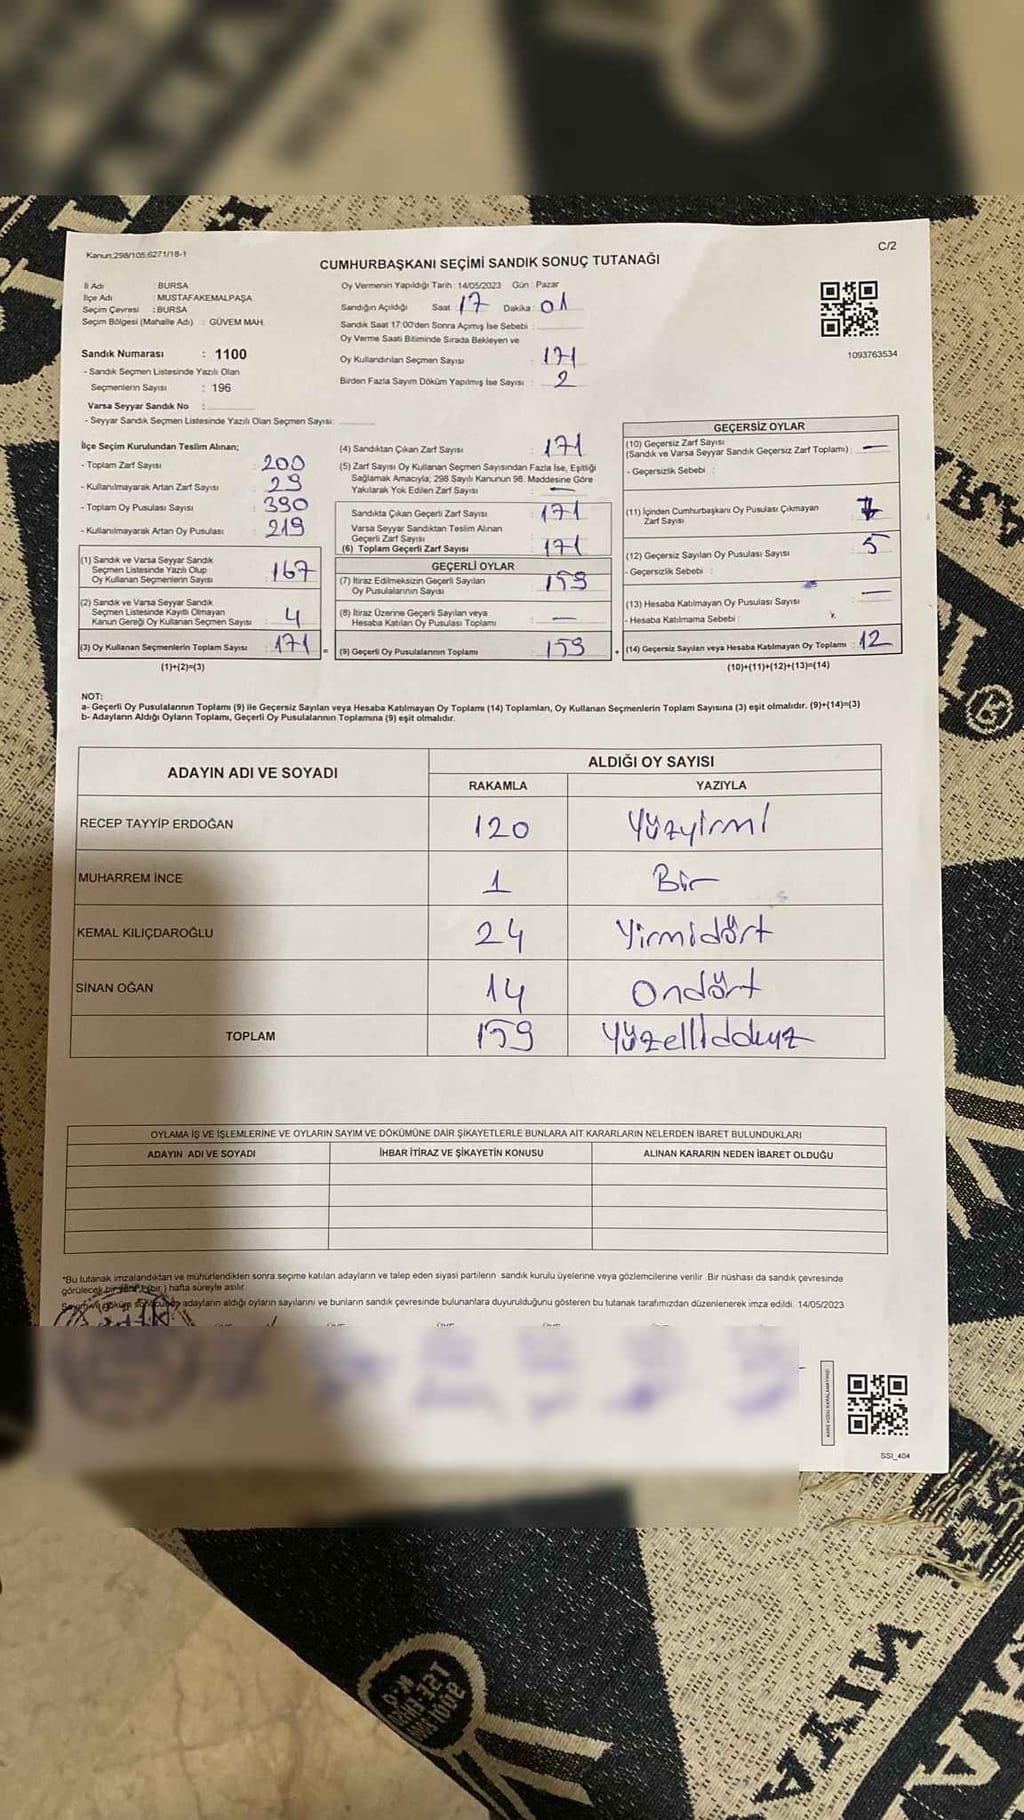 Kanun:298/105;6271/18-1
C/2
CUMHURBAŞKANI SEÇİMİ SANDIK SONUÇ TUTANAĞI
İl Adı : BURSA
İlçe Adı : MUSTAFAKEMALPAŞA
Seçim Çevresi : BURSA
Seçim Bölgesi (Mahalle Adı) : GÜVEM MAH.
Sandık Numarası : 1100
- Sandık Seçmen Listesinde Yazılı Olan
Seçmenlerin Sayısı : 196
Varsa Seyyar Sandık No :
- Seyyar Sandık Seçmen Listesinde Yazılı Olan Seçmen Sayısı:
Oy Vermenin Yapıldığı Tarih :14/05/2023 Gün : Pazar
Sandığın Açıldığı Saat : 17 Dakika : 01
Sandık Saat 17:00'den Sonra Açımış İse Sebebi :
Oy Verme Saati Bitiminde Sırada Bekleyen ve
Oy Kullandırılan Seçmen Sayısı : 171
Birden Fazla Sayım Döküm Yapılmış İse Sayısı : 2
1093763534
İlçe Seçim Kurulundan Teslim Alınan;
- Toplam Zarf Sayısı : 200
- Kullanılmayarak Artan Zarf Sayısı : 29
- Toplam Oy Pusulası Sayısı : 390
- Kullanılmayarak Artan Oy Pusulası : 219
(1) Sandık ve Varsa Seyyar Sandık
Seçmen Listesinde Yazılı Olup
Oy Kullanan Seçmenlerin Sayısı : 167
(2) Sandık ve Varsa Seyyar Sandık
Seçmen Listesinde Kayıtlı Olmayan
Kanun Gereği Oy Kullanan Seçmen Sayısı : 4
(3) Oy Kullanan Seçmenlerin Toplam Sayısı : 171 =
(1)+(2)=(3)
(4) Sandıktan Çıkan Zarf Sayısı : 171
(5) Zarf Sayısı Oy Kullanan Seçmen Sayısından Fazla İse, Eşitliği
Sağlamak Amacıyla; 298 Sayılı Kanunun 98. Maddesine Göre
Yakılarak Yok Edilen Zarf Sayısı : —
Sandıkta Çıkan Geçerli Zarf Sayısı : 171
Varsa Seyyar Sandıktan Teslim Alınan
Geçerli Zarf Sayısı
(6) Toplam Geçerli Zarf Sayısı : 171
GEÇERLİ OYLAR
(7) İtiraz Edilmeksizin Geçerli Sayılan
Oy Pusulalarının Sayısı : 159
(8) İtiraz Üzerine Geçerli Sayılan veya
Hesaba Katılan Oy Pusulası Toplamı : —
(9) Geçerli Oy Pusulalarının Toplamı : 159 +
GEÇERSİZ OYLAR
(10) Geçersiz Zarf Sayısı
(Sandık ve Varsa Seyyar Sandık Geçersiz Zarf Toplamı) : —
- Geçersizlik Sebebi :
(11) İçinden Cumhurbaşkanı Oy Pusulası Çıkmayan
Zarf Sayısı :
(12) Geçersiz Sayılan Oy Pusulası Sayısı : 5
- Geçersizlik Sebebi :
(13) Hesaba Katılmayan Oy Pusulası Sayısı : —
- Hesaba Katılmama Sebebi :
(14) Geçersiz Sayılan veya Hesaba Katılmayan Oy Toplamı : 12
(10)+(11)+(12)+(13)=(14)
NOT:
a- Geçerli Oy Pusulalarının Toplamı (9) ile Geçersiz Sayılan veya Hesaba Katılmayan Oy Toplamı (14) Toplamları, Oy Kullanan Seçmenlerin Toplam Sayısına (3) eşit olmalıdır. (9)+(14)=(3)
b- Adayların Aldığı Oyların Toplamı, Geçerli Oy Pusulalarının Toplamına (9) eşit olmalıdır.
ADAYIN ADI VE SOYADI
ALDIĞI OY SAYISI
RAKAMLA YAZIYLA
RECEP TAYYİP ERDOĞAN 120 Yüzyirmi
MUHARREM İNCE 1 Bir
KEMAL KILIÇDAROĞLU 24 Yirmidört
SİNAN OĞAN 14 Ondört
TOPLAM 159
OYLAMA İŞ VE İŞLEMLERİNE VE OYLARIN SAYIM VE DÖKÜMÜNE DAİR ŞİKAYETLERLE BUNLARA AİT KARARLARIN NELERDEN İBARET BULUNDUKLARI
ADAYIN ADI VE SOYADI İHBAR İTİRAZ VE ŞİKAYETİN KONUSU ALINAN KARARIN NEDEN İBARET OLDUĞU
*Bu tutanak imzalandıktan ve mühürlendikten sonra seçime katılan adayların ve talep eden siyasi partilerin sandık kurulu üyelerine veya gözlemcilerine verilir. Bir nüshası da sandık çevresinde
görülecek bir yere (bir) hafta süreyle asılır.
adayların aldığı oyların sayılarını ve bunların sandık çevresinde bulunanlara duyurulduğunu gösteren bu tutanak tarafımızdan düzenlenerek imza edildi. 14/05/2023
SSI_404